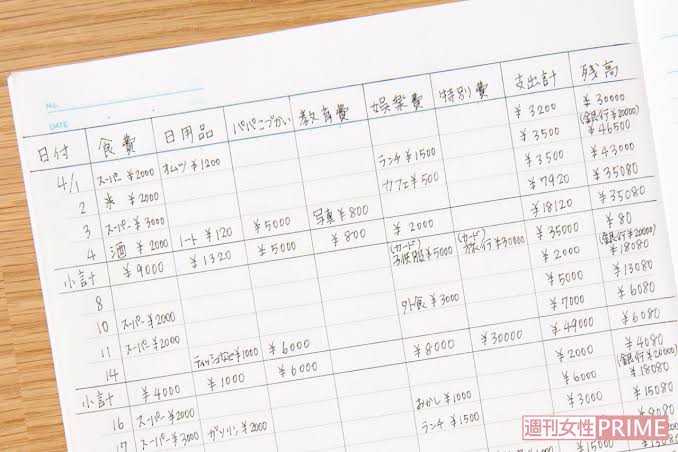 No.
DATE
日付 食費 日用品 パパこづかい 教育費 娯楽費 特別費 支出計 残高
¥30000
4/1 スーパー ¥2000 オムツ ¥1200 ¥3200 (銀行¥20000) ¥46500
2 米 ¥2000 ランチ ¥1500 ¥3500 ¥43000
3 スーパー ¥3000 カフェ ¥500 ¥3500 ¥35080
4 酒 ¥2000 ノート ¥120 ¥5000 写真 ¥800 ¥7920 ¥35080
小計 ¥9000 ¥1320 ¥5000 ¥800 ¥2000 ¥18120 ¥80
8 (カード) 子供服 ¥5000 (カード) 旅行 ¥30000 ¥35000 (銀行¥20000) ¥18080
10 スーパー ¥2000 ¥2000 ¥13080
11 スーパー ¥2000 外食 ¥3000 ¥5000 ¥6080
14 ティッシュなど ¥1000 ¥6000 ¥7000 ¥6080
小計 ¥4000 ¥1000 ¥6000 ¥8000 ¥30000 ¥49000 ¥4080
16 スーパー ¥2000 ¥2000 (銀行¥20000) ¥18080
17 スーパー ¥3000 ガソリン ¥2000 おかし ¥1000 ¥6000 ¥15080
ランチ ¥1500 ¥3000
週刊女性PRIME